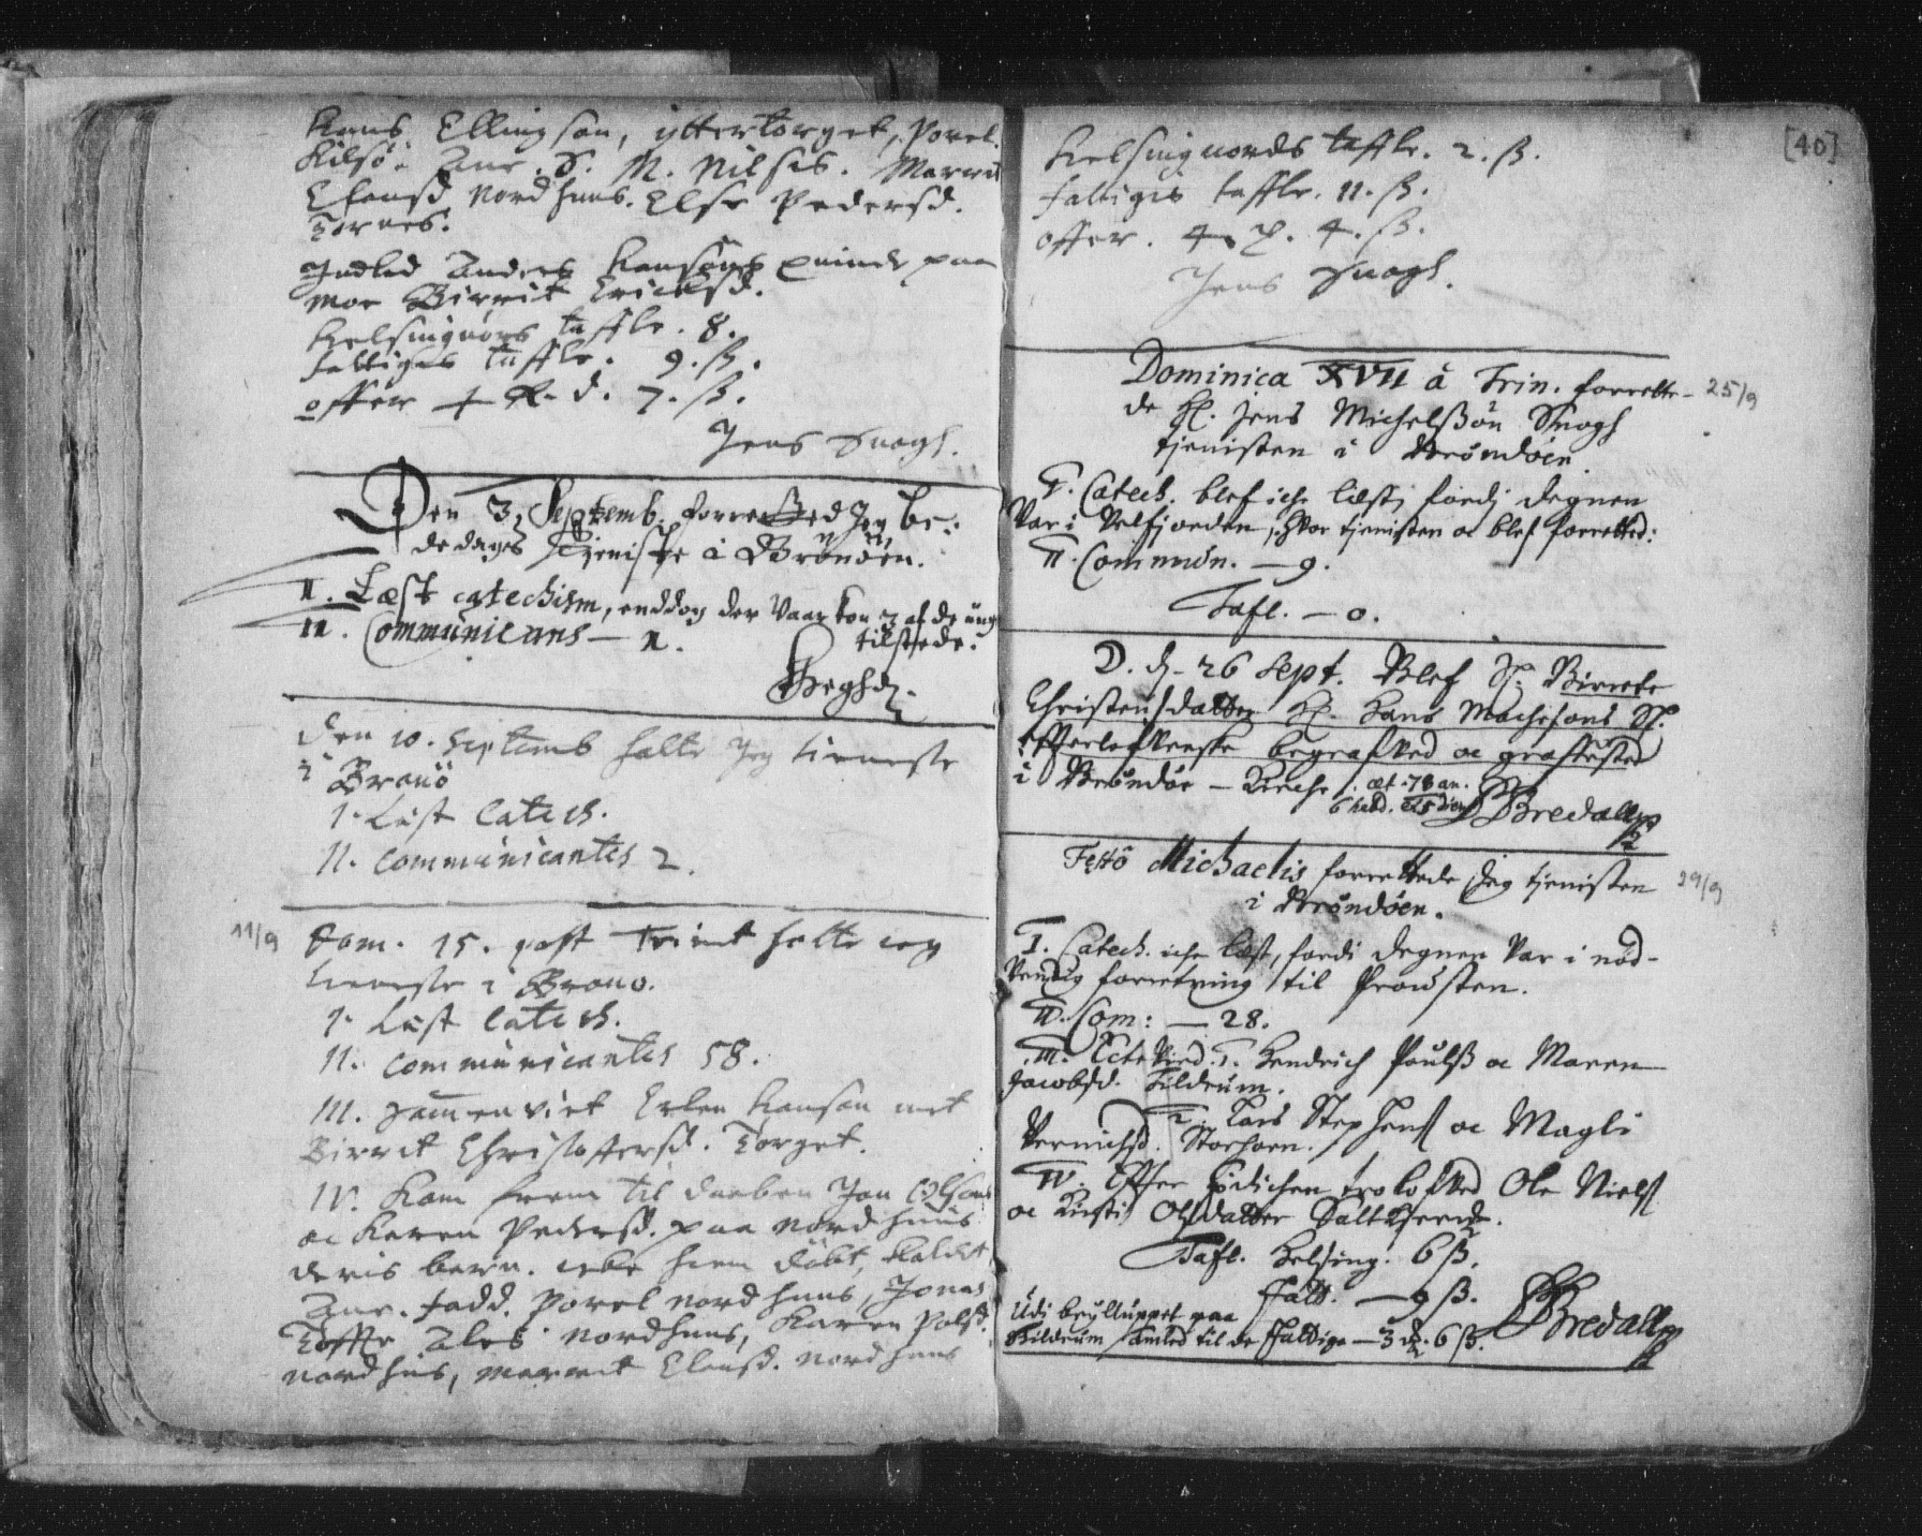 Hans Ellingsøn, yttertorget, Porel
Kilsø. Ane. S. M. Nilses. Marrit
Efensd. Nordhuus. Else Pedersd.
Tornes.
Indled Anders Hansøns quinde paa
Moe Birrit Erichsd.
Helsingnørs taffle. 8.
Fattiges taffle. 9. ß.
offer 7. ß.
Jens Snogh.
Den 3. Septemb. forretted Jeg be-
dedages Tieniste i Brønøen.
II. Læst catechism, enddog der Vaar kon 7 af de ung
tilstede.
III. Communicans — n.
Den 10. Septemb holte Jeg tieneste
i Bronö
1. Lest Catech.
11. Communicantes 2.
11/9
Dom. 15. post Trinit holte ieg
tieneste i Brono.
1. Lest Catech.
11. Communicantes 58.
111. Sammenviet Erlen Hansøn met
Birrit Christoffersd. Torget.
IV. Kom frem til daaben Jon Olsøns
oc Karen Pedersd. paa Nordhuus
deris barn. icke hiem døbt, kaldet
Ane. fadd. Porel Nordhuus, Jonas
Toffte Nordhuus, Karen Polsd.
Nordhus, Marrit Elensd. Nordhuus
[40]
Helsingnords taffle. 2. ß.
Fattiges taffle. 11. ß.
offer. 4. ß.
Jens Snogh.
Dominica XVII à Trin. forrette- 25/9
de Hr. Jens Michelßøn Snogh
tjenisten i Brøndøen.
I. Catech. blef iche læst, fordj degnen
Var i Velfjorden, hvor tjenisten oc blef forretted:
II. Commun. — 9.
Tafl. — 0.
D. d. 26 Sept. Blef Sl. Birrete
Christensdatter Hr. Hans Machesøns Sl.
Effterlefverske begrafved oc graffested
i Brøndøe — Kirche. æt. 78 an.
6 hebd.
Bredall
Festo Michaelis forrettede Jeg tjenisten 29/9
i Brøndøen.
I. Catech. iche læst, fordi degnen Var i nöd-
Vendig forretning til Provsten.
II. Com: — 28.
III. 1. Hendrich Poulß oc Maren
Jacobsd. Tildrum.
2. Lars Stephens oc Magli
Storhoen.
IV. Effter trolofved Ole Niels
oc Kirsti Olsdatter
Tafl. Helsing. 6 ß.
Fatt. — 9 ß.
Udi brylluppet paa
Tildrum samled til de Fattige — 3 6 ß.
Bredall